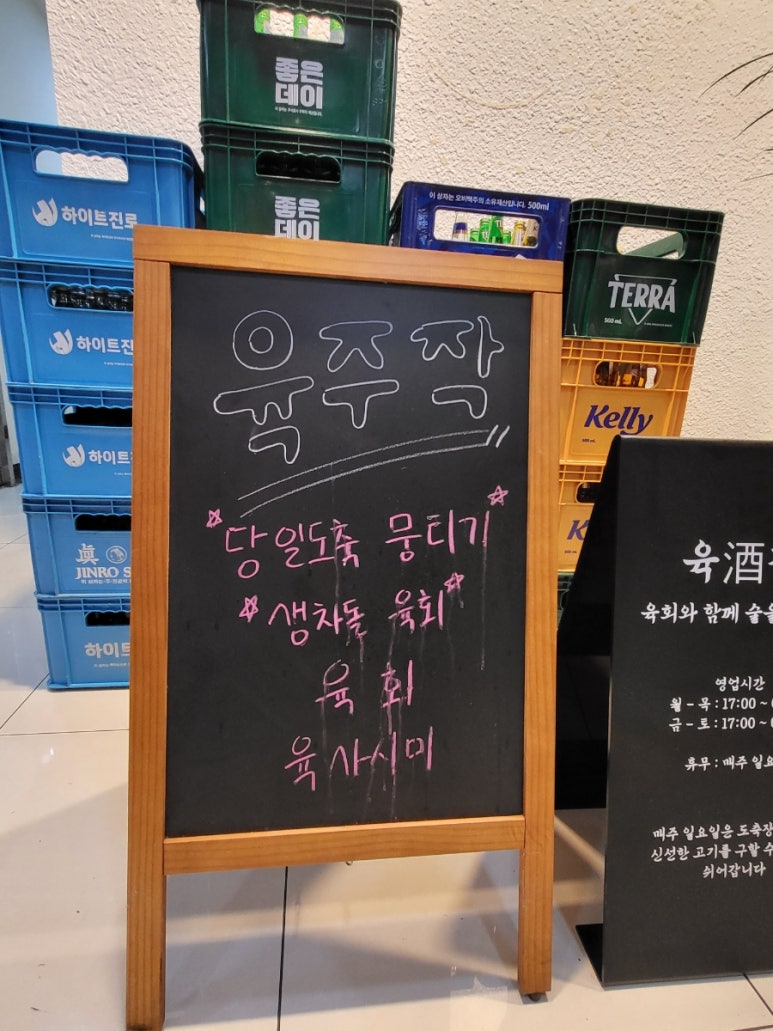 좋은
데이
좋은
데이
하이트진로
이 상자는 오비맥주의 소유재산입니다. 500ml
TERRA
500 mL
하이트진로
Kelly
500 mL
하이트
眞
JINRO
하이트
육주작
당일도축 뭉티기
생차돌 육회
육회
육사시미
육酒
육회와 함께 술을
영업시간
월 - 목 : 17:00 ~
금 - 토 : 17:00 ~
휴무 : 매주 일요
매주 일요일은 도축장
신선한 고기를 구할 수
쉬어갑니다